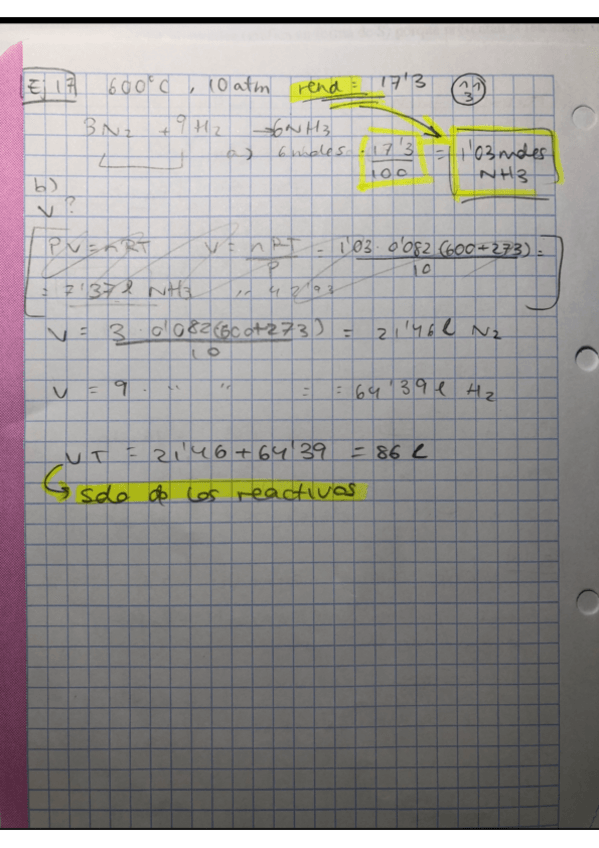 Ej 17 600°C, 10 atm rend = 17'3
3N2 + 9H2 → 6NH3
a) 6 moles · 17'3/100 = 1'03 moles NH3
b)
V?
PV = nRT V = nRT/P = 1'03 · 0'082 (600+273)/10 =
= 7'37 l NH3
V = 3 · 0'082 (600+273)/10 = 21'46 l N2
V = 9 · " " = = 64'39 l H2
VT = 21'46 + 64'39 = 86 l
↳ solo de los reactivos